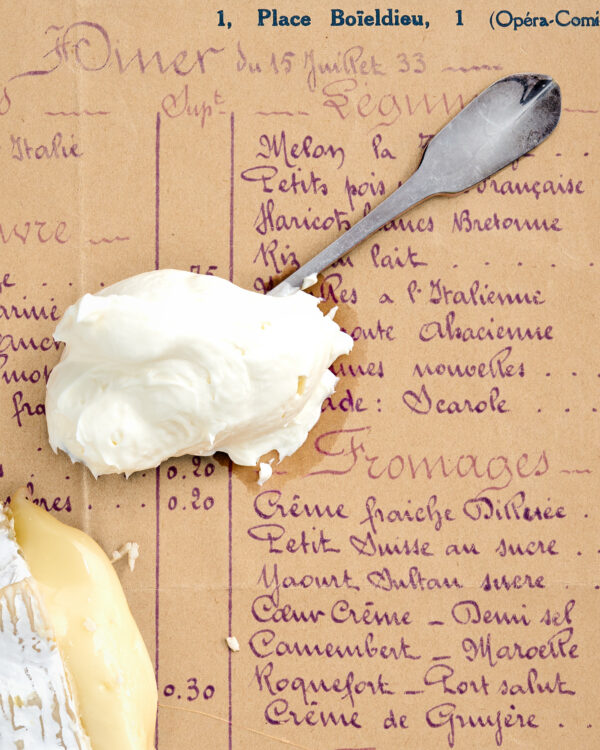 1, Place Boïeldieu, 1 (Opéra-Comi
Diner du 15 Juillet 33
Supt
Légum
Italie
Melon la
Petits pois française
Haricots Bretonne
Riz lait
75
a l'Italienne
Alsacienne
nouvelles . . .
Scarole . . .
0.20
Fromages
0.20
Crême fraiche .
Petit Suisse au sucre . .
Yaourt Sultan sucre . .
Cœur Crême _ Demi sel
Camembert _ Maroelle
0.30
Roquefort _ Port salut
Crême de Gruyère . .